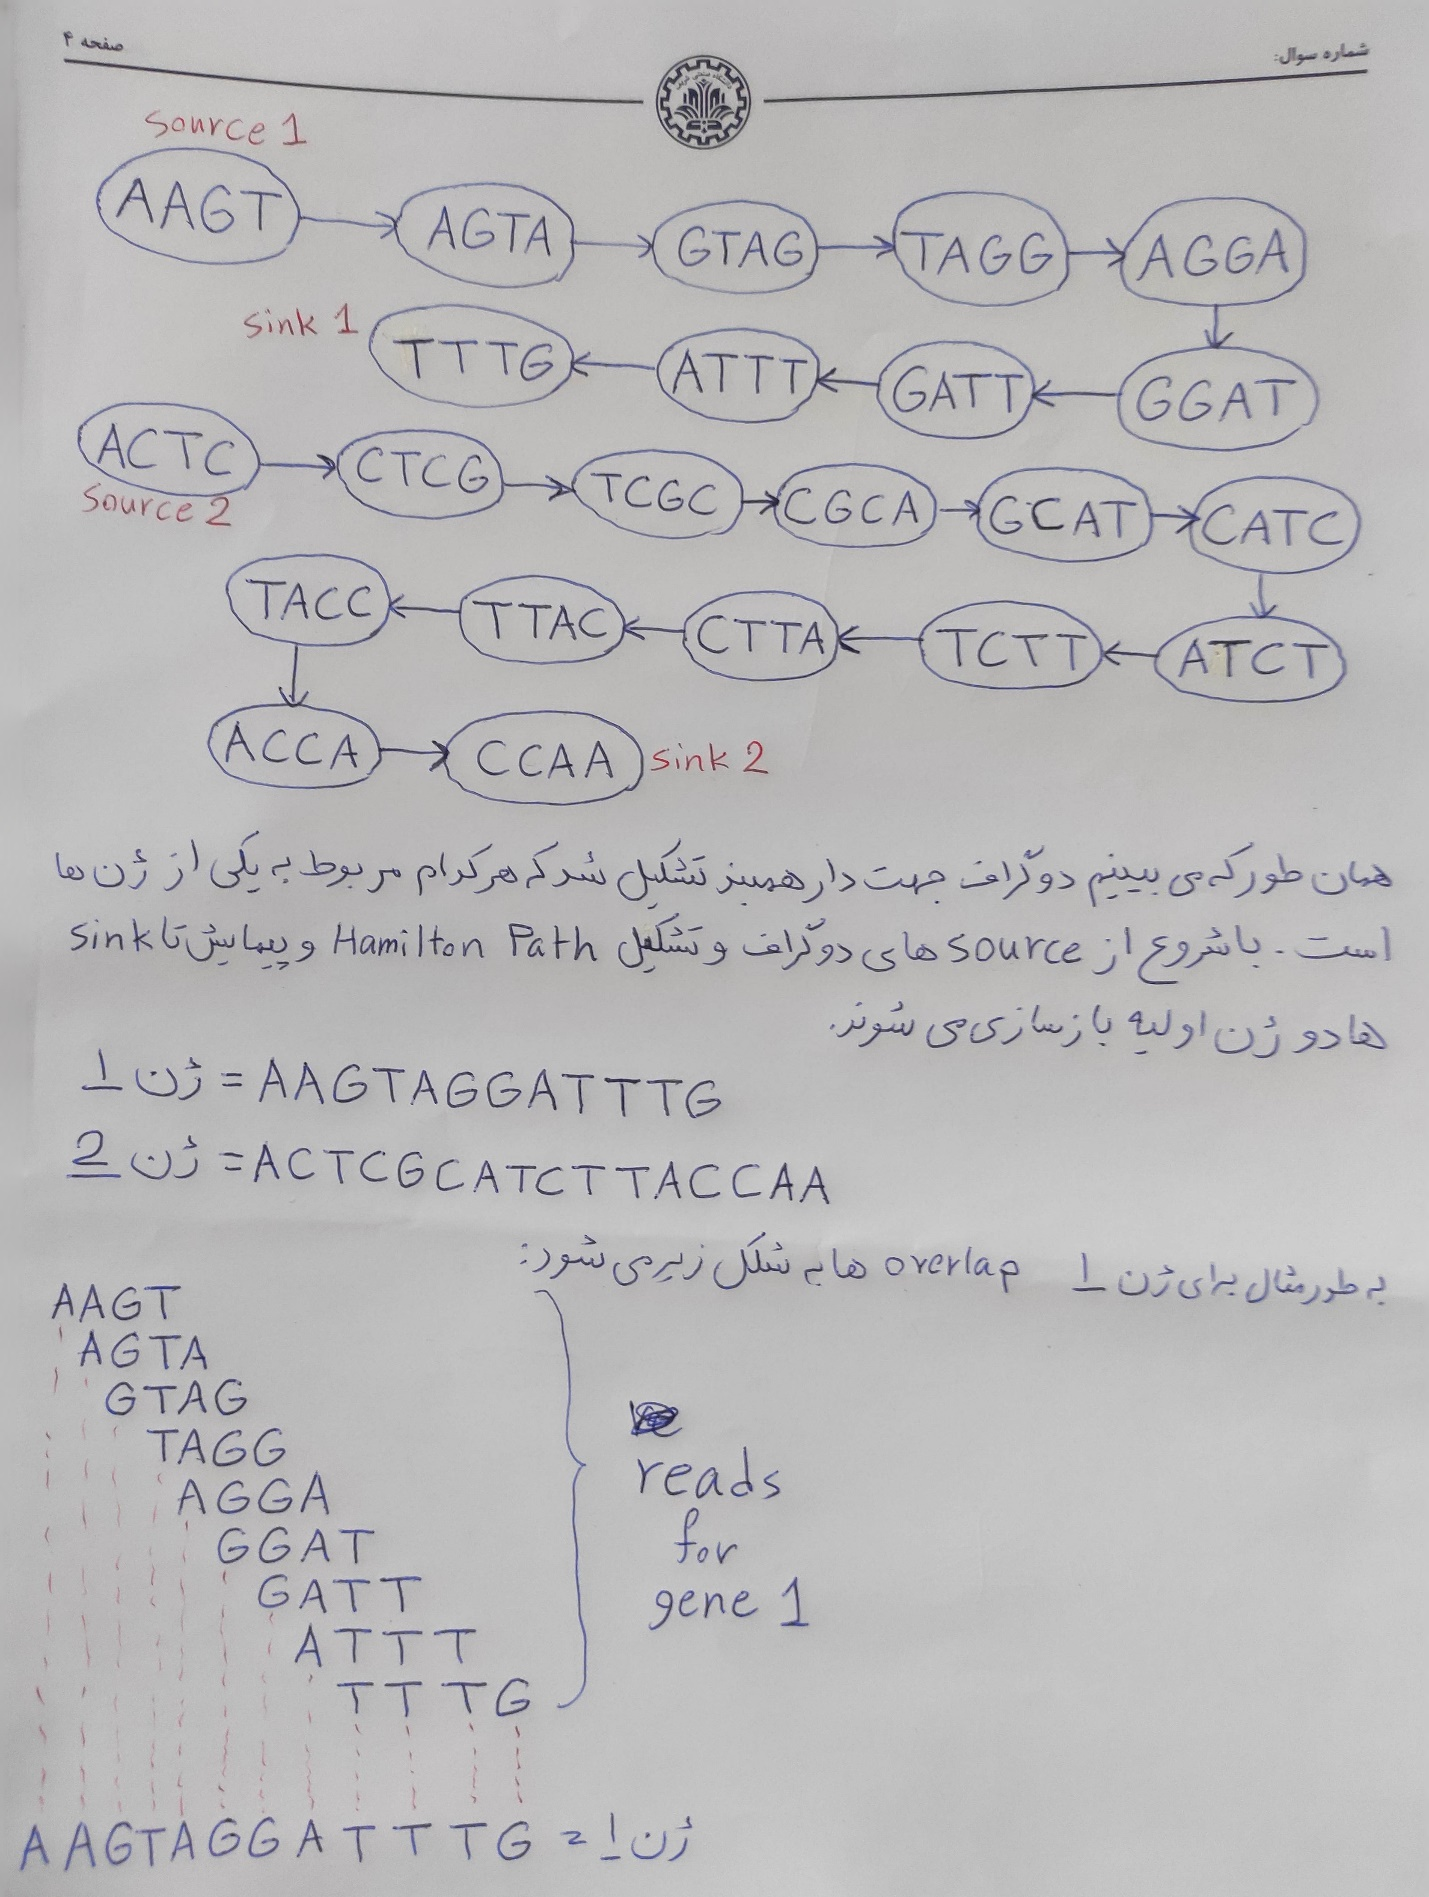 شماره سوال: صفحه ۴
Source 1
AAGT → AGTA → GTAG → TAGG → AGGA
sink 1 TTTG ← ATTT ← GATT ← GGAT
ACTC → CTCG → TCGC → CGCA → GCAT → CATC
Source 2
TACC ← TTAC ← CTTA ← TCTT ← ATCT
ACCA → CCAA sink 2
همان طور که می بینیم دو گراف جهت دار همبند تشکیل شد که هر کدام مربوط به یکی از ژن ها
است. با شروع از source های دو گراف و تشکیل Hamilton Path و پیمایش تا sink
ها دو ژن اولیه بازسازی می شوند.
ژن 1 = AAGTAGGATTTG
ژن 2 = ACTCGCATCTTACCAA
به طور مثال برای ژن 1 overlap ها به شکل زیر می شود:
AAGT
AGTA
GTAG
TAGG
AGGA
GGAT
GATT
ATTT
TTTG
reads
for
gene 1
AAGTAGGATTTG = ژن 1